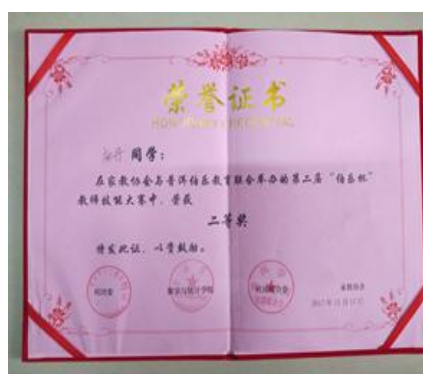 荣誉证书
HONORARY CREDENTIAL
同学：
在家教协会与普洱伯乐教育联合举办的第二届“伯乐杯”
教师技能大赛中，荣获
二等奖
特发此证，以资鼓励。
校团委
数学与统计学院
家教协会
2017年12月17日